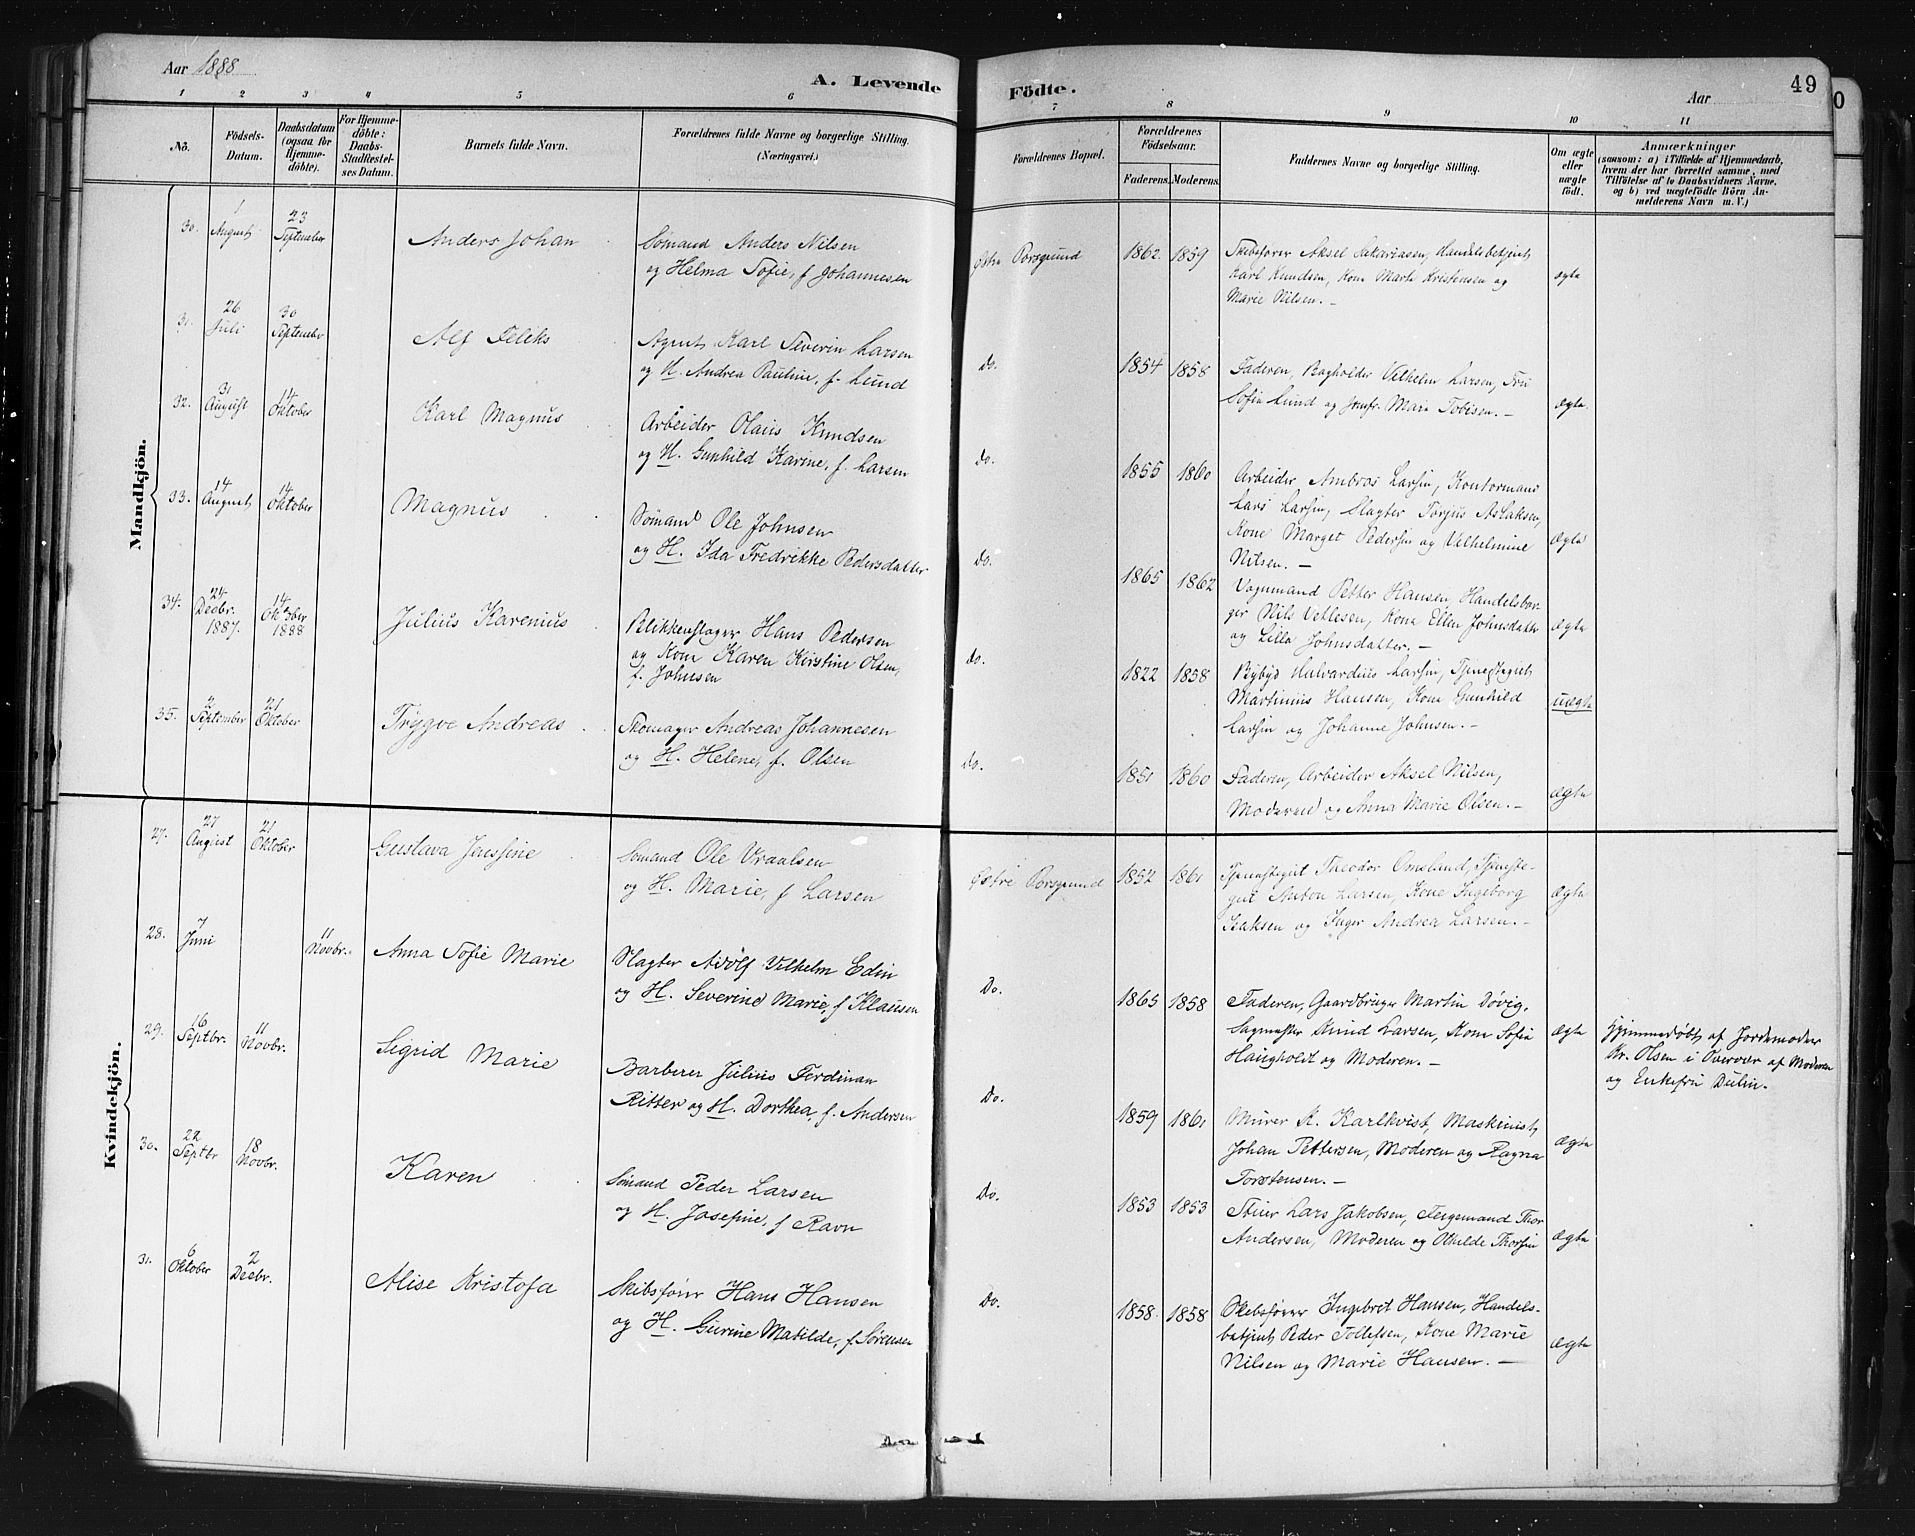 Aar 1888
A. Levende
1 2 3 4 5 6
No.
Födsels-
Datum.
Daabsdatum
(ogsaa for
Hjemme-
döbte).
For Hjemme-
döbte:
Daabs-
Stadfæstel-
ses Datum.
Barnets fulde Navn.
Forældrenes fulde Navne og borgerlige Stilling.
(Næringsvei.)
Mandkjön.
30.
1
August
23
September
Anders Johan
Sømand Anders Nilsen
og Helma Sofie, f. Johannesen
31.
26
Juli
30
September
Alf Feleks
Agent Karl Severin Larsen
og H. Andrea Pauline, f. Lund
32.
31
August
14
Oktober
Karl Magnus
Arbeider Olaus Knudsen
og H. Gunhild Karine, f. Larsen
33.
14
August
14
Oktober
Magnus
Sømand Ole Johnsen
og H. Ida Fredrikke Pedersdatter
34.
24
Decbr.
1887.
14
Oktober
1888
Julius Karenius
Blikkenslager Hans Pedersen
og Kone Karen Kirstine Olsen,
f. Johnsen
35.
2
September
21
Oktober
Trygve Andreas
Skomager Andreas Johannesen
og H. Helene, f. Olsen
Kvindekjön.
27.
27
August
21
Oktober
Gustava Jenssine
Sømand Ole Vraalsen
og H. Marie, f Larsen
28.
7
Juni
11
Novbr.
Anna Sofie Marie
Slagter Adolf Vilhelm Edin
og H. Severine Marie, f Klausen
29.
16
Septbr.
11
Novbr.
Sigrid Marie
Barberer Julius Ferdinan
Ritter og H. Dorthea, f. Andersen
30.
22
Septbr
18
Novbr.
Karen
Sømand Peder Larsen
og H. Josefine, f Ravn
31.
6
Oktober
2
Decbr.
Alise Kristofa
Skibsfører Hans Hansen
og H. Gurine Matilde, f Sørensen
Födte.
Aar
49
7 8 9 10 11
Forældrenes Bopæl.
Forældrenes
Födselsaar.
Faderens. Moderens.
Faddernes Navne og borgerlige Stilling.
Om ægte
eller
uægte
födt.
Anmærkninger
(saasom: a) i Tilfælde af Hjemmedaab,
hvem der har forrettet samme, med
Tilföielse af to Daabsvidners Navne,
og b) ved uægtefödte Börn An-
melderens Navn m. V.)
Østre Porsgrund
1862. 1859
Skibsfører Aksel Sakariasen, Handelsbetjent
Karl Knudsen, Kone Marte Kristensen og
Marie Nilsen. —
ægte
Do.
1854 1858
Faderen, Bogholder Vilhelm Larsen, Fru
Sofie Lund og Jomfr. Marie Tobisen. —
ægte
Do.
1855 1860
Arbeider Ambros Larsen, Kontormand
Lars Larsen, Slagter Torjus Aslaksen,
Kone Marget Pedersen og Vilhelmine
Nilsen. —
Ægte
Do.
1865 1862
Vognmand Petter Hansen, Handelsbor-
ger Nils Vetlesen, Kone Ellen Johnsdatter
og Lilla Johnsdatter. —
Ægte
Do.
1822 1858
Halvardius Larsen, Tjenestegut
Martinius Hansen, Kone Gunhild
Larsen og Johanne Johnsen. —
uægte
Do.
1851 1860
Faderen, Arbeider Aksel Nilsen,
Moderen og Anna Marie Olsen. —
Ægte
Østre Porsgrund
1852 1861
Tjenestegut Theodor Omslund, Tjeneste-
gut Anton Larsen, Kone Ingeborg
Isaksen og Inger Andrea Larsen. —
Ægte
Do.
1865 1858
Faderen, Gaardbruger Martin Døvig,
Sagmester Knud Larsen, Kone Sofie
Haugholdt og Moderen. —
Ægte
Hjemmedøbt af Jordemoder
Kr. Olsen i Overvær af Moderen
og Enkefru Dulin.
Do.
1859 1861
Murer K. Karlkvist, Maskinist
Johan Pettersen, Moderen og Ragna
Torstensen. —
Ægte
Do.
1853 1853
Stuer Lars Jakobsen, Færgemand Thor
Andersen, Moderen og Othilde Thorsen
Ægte
Do.
1858. 1858
Skibsfører Ingebret Hansen, Handels-
betjent Peder Tollefsen, Kone Marie
Nilsen og Marie Hansen. —
Ægte